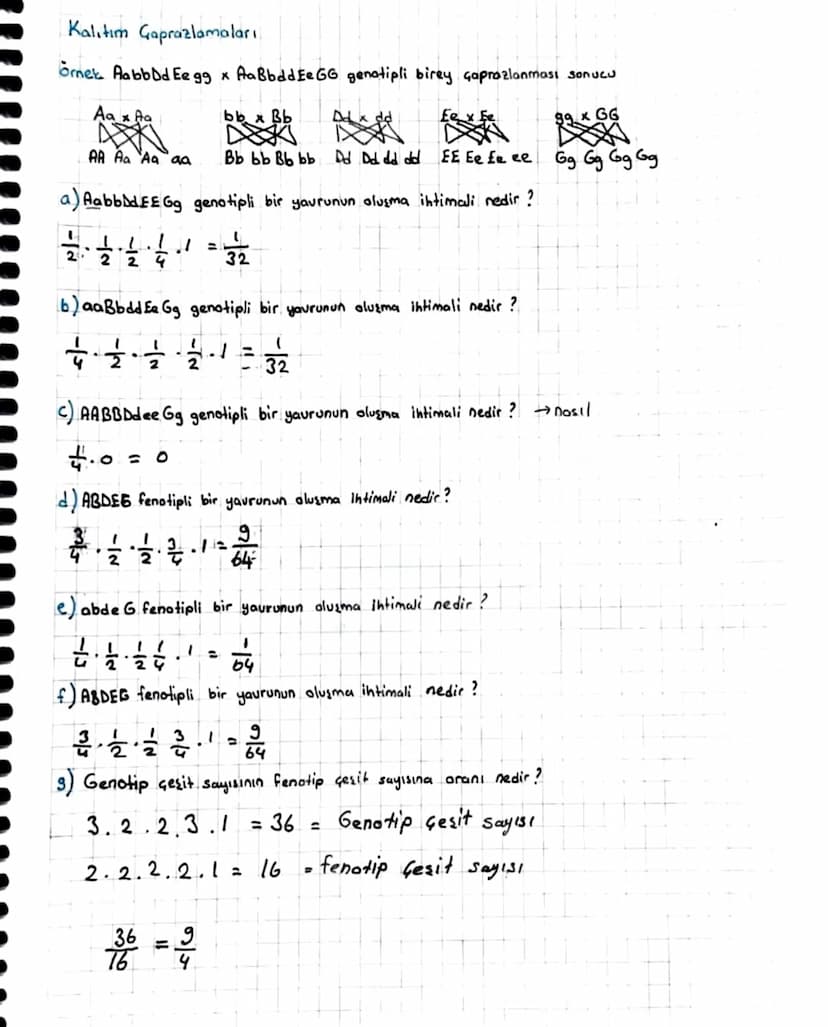 Kalıtım Çaprazlamaları
Örnek AabbDdEegg x AaBbddEeGG genotipli birey çaprazlanması sonucu
Aa x Aa bb x Bb Dd x dd Ee x Ee gg x GG
AA Aa Aa aa Bb bb Bb bb Dd Dd dd dd EE Ee Ee ee Gg Gg Gg Gg
a) AabbDdEEGg genotipli bir yavrunun oluşma ihtimali nedir ?
1/2 . 1/2 . 1/2 . 1/4 . 1 = 1/32
b) aaBbddEeGg genotipli bir yavrunun oluşma ihtimali nedir ?
1/4 . 1/2 . 1/2 . 1/2 . 1 = 1/32
c) AABBDdeeGg genotipli bir yavrunun oluşma ihtimali nedir ? → nasıl
1/4 . 0 = 0
d) ABDEG fenotipli bir yavrunun oluşma ihtimali nedir ?
3/4 . 1/2 . 1/2 . 3/4 . 1 = 9/64
e) abdeG fenotipli bir yavrunun oluşma ihtimali nedir ?
1/4 . 1/2 . 1/2 1/4 . 1 = 1/64
f) ABDEG fenotipli bir yavrunun oluşma ihtimali nedir ?
3/4 . 1/2 . 1/2 3/4 . 1 = 9/64
g) Genotip çeşit sayısının fenotip çeşit sayısına oranı nedir ?
3 . 2 . 2 . 3 . 1 = 36 = Genotip çeşit sayısı
2 . 2 . 2 . 2 . 1 = 16 = fenotip çeşit sayısı
36/16 = 9/4